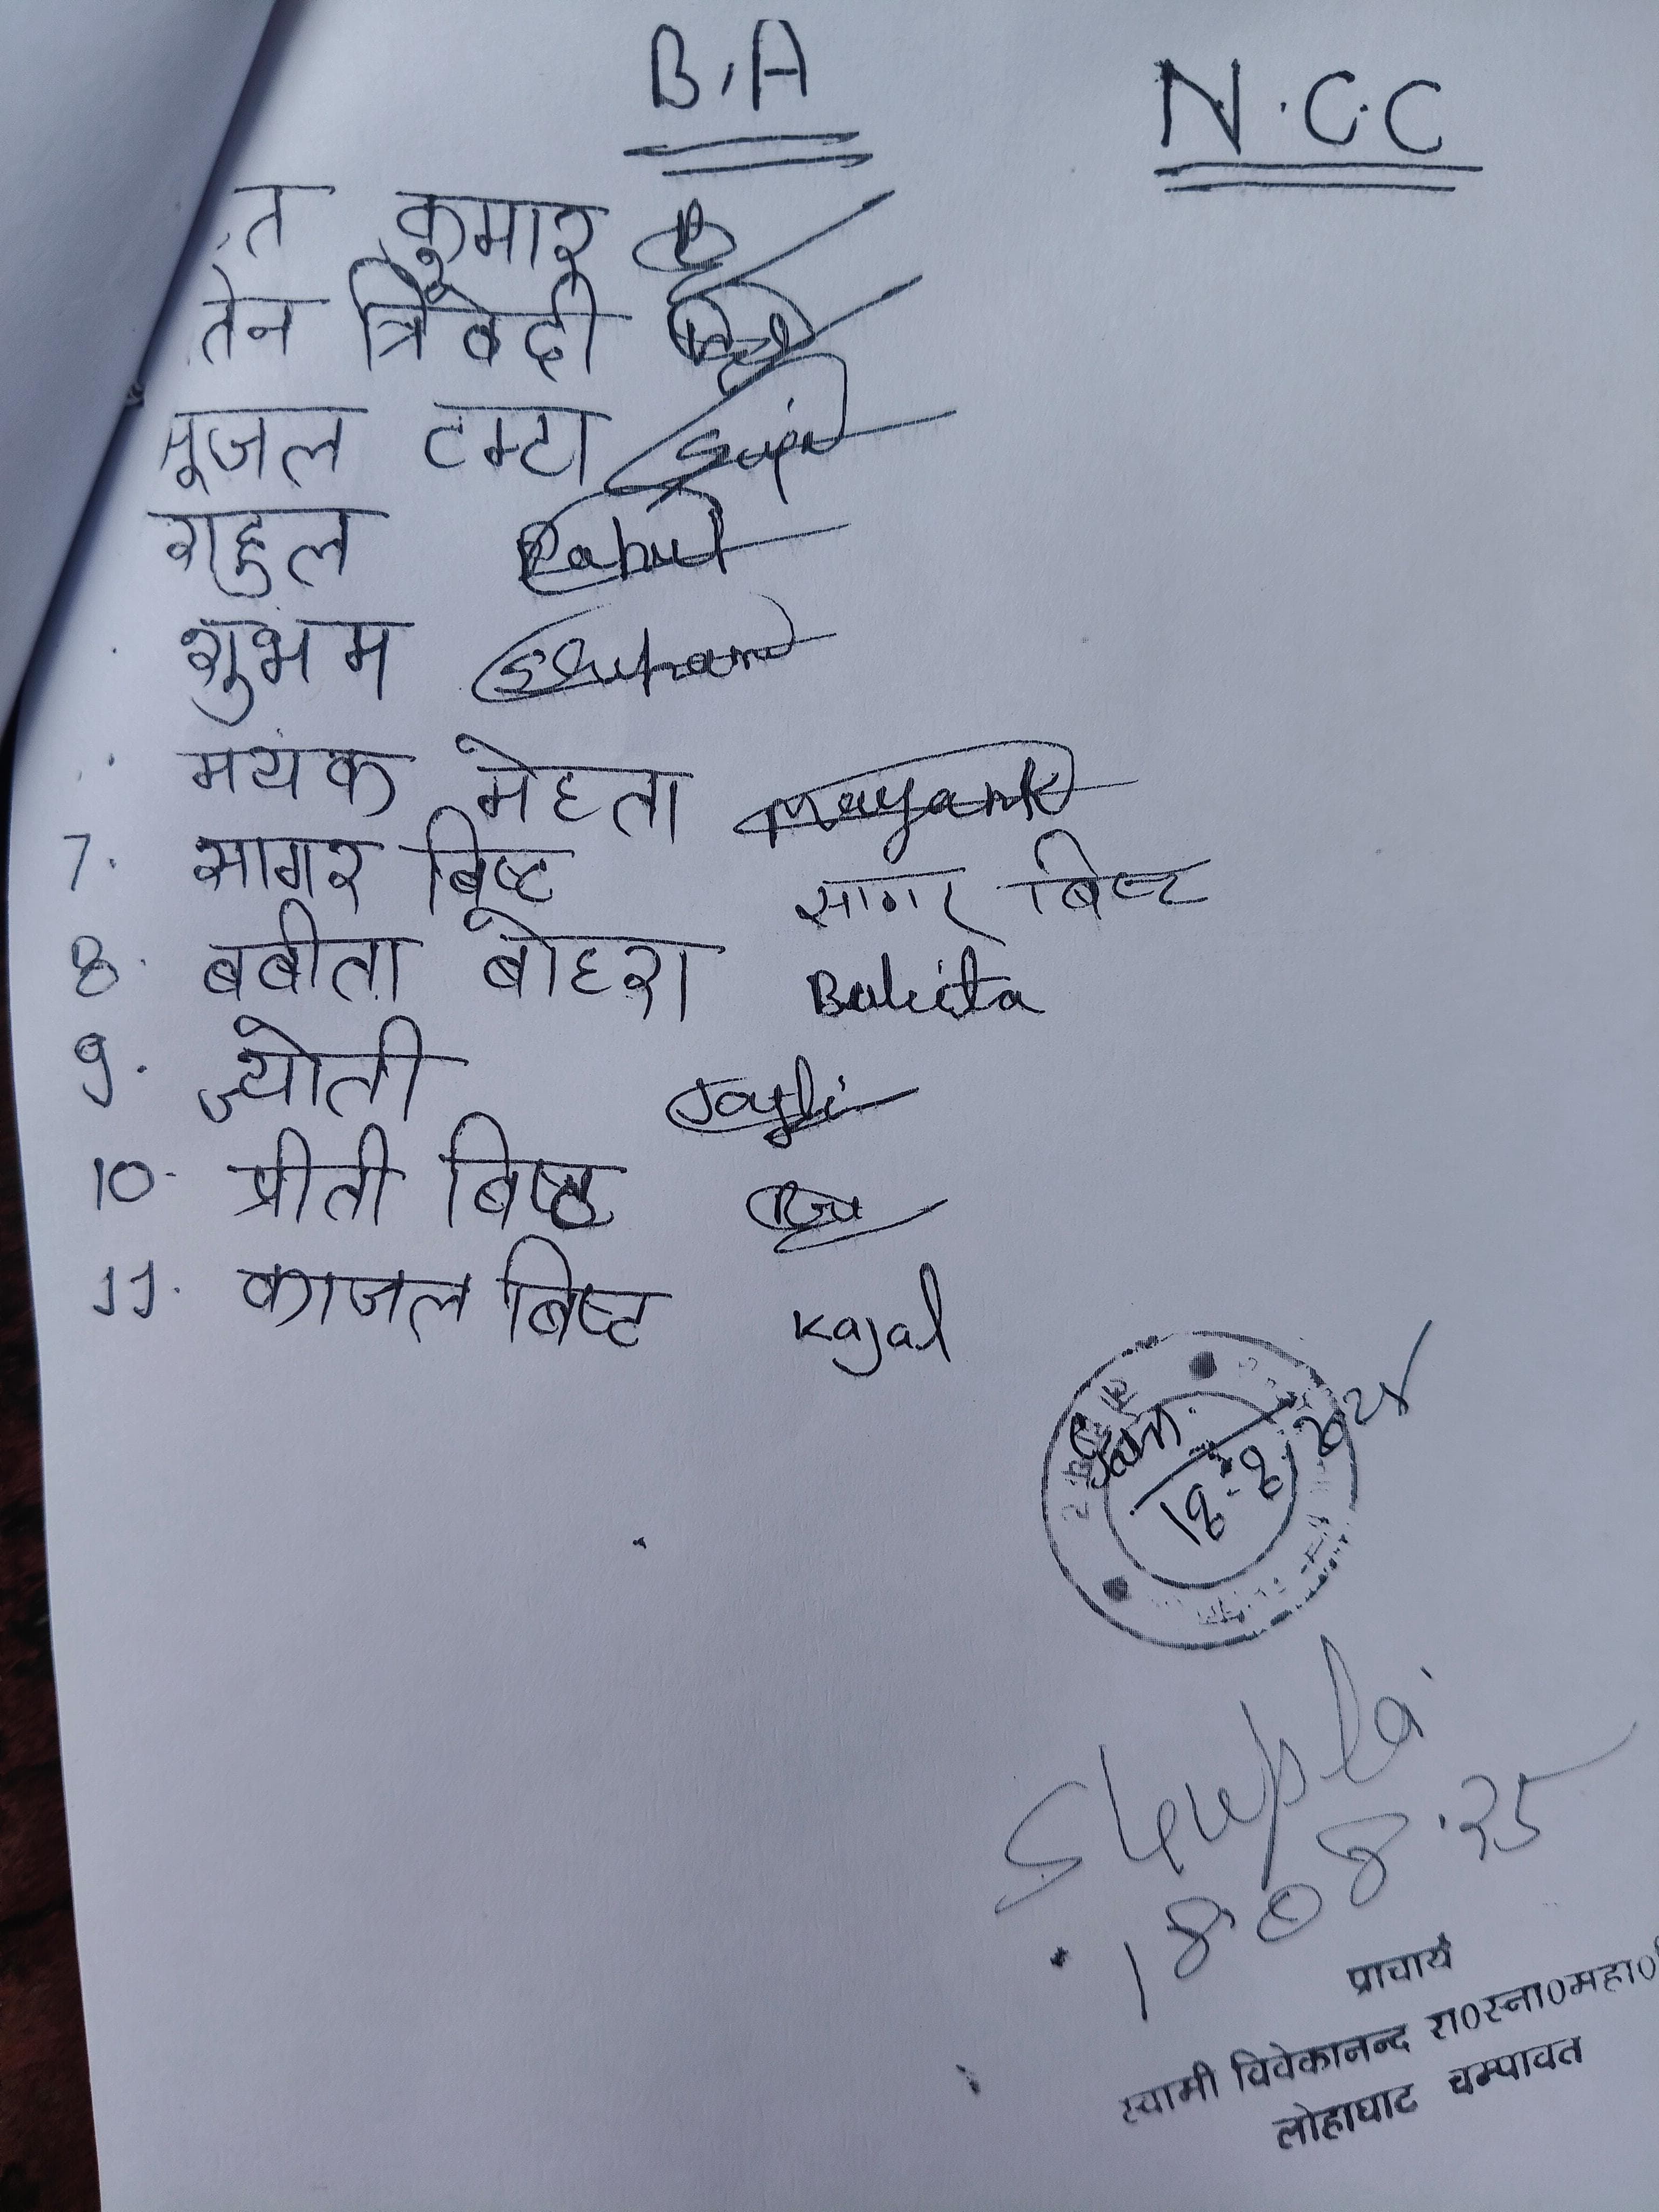 B.A N.C.C
कुमार
त्रिवेदी
सूजल टम्टा
राहुल Rahul
शुभम Shubham
मयंक मेहता mayank
7. सागर बिष्ट सागर बिष्ट
8. बबीता बोहरा Babita
9. ज्योती
10. प्रीती बिष्ट
11. काजल बिष्ट Kajal
प्राचार्य
स्वामी विवेकानन्द रा०स्ना०महा०
लोहाघाट चम्पावत